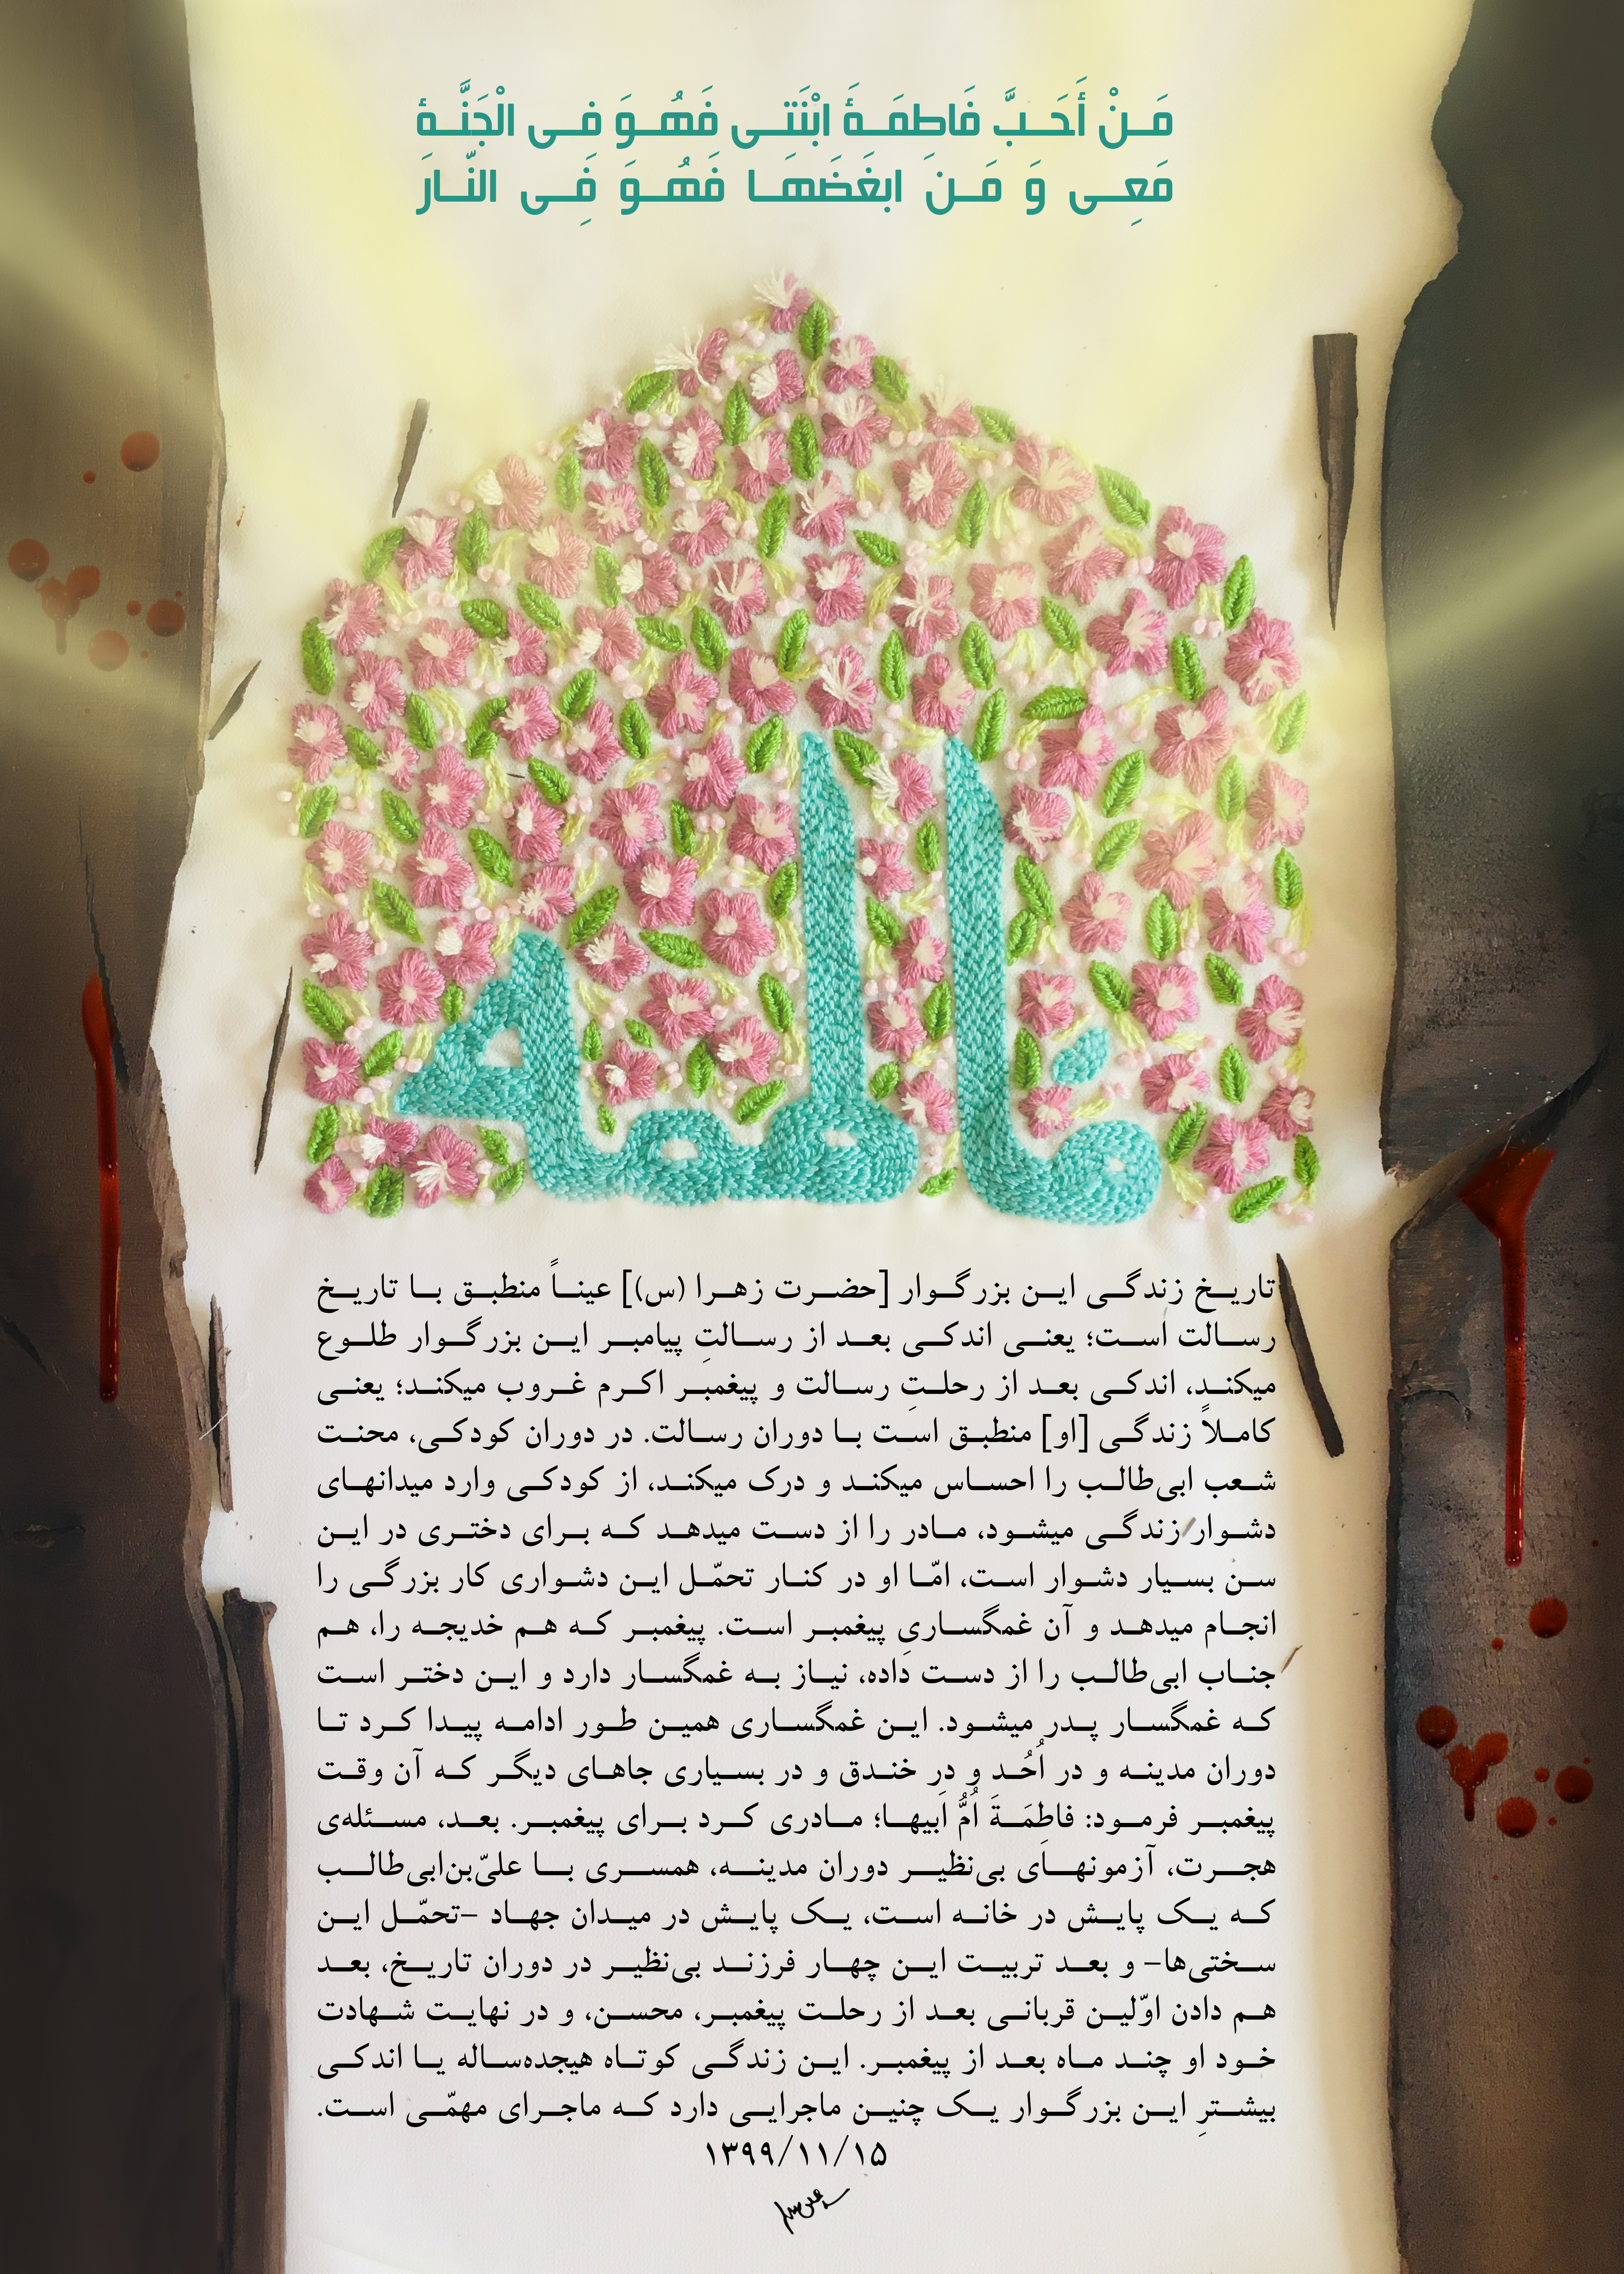 مَنْ أَحَبَّ فَاطِمَةَ ابْنَتی فَهُوَ فی الْجَنَّةِ
مَعِی وَ مَنَ ابغَضَهَا فَهُوَ فِی النّارَ
فاطمه
تاریخ زندگی این بزرگوار [حضرت زهرا (س)] عیناً منطبق با تاریخ
رسالت است؛ یعنی اندکی بعد از رسالتِ پیامبر این بزرگوار طلوع
میکند، اندکی بعد از رحلتِ رسالت و پیغمبر اکرم غروب میکند؛ یعنی
کاملاً زندگی [او] منطبق است با دوران رسالت. در دوران کودکی، محنت
شعب ابی‌طالب را احساس میکند و درک میکند، از کودکی وارد میدانهای
دشوار زندگی میشود، مادر را از دست میدهد که برای دختری در این
سن بسیار دشوار است، امّا او در کنار تحمّل این دشواری کار بزرگی را
انجام میدهد و آن غمگساریِ پیغمبر است. پیغمبر که هم خدیجه را، هم
جناب ابی‌طالب را از دست داده، نیاز به غمگسار دارد و این دختر است
که غمگسار پدر میشود. این غمگساری همین طور ادامه پیدا کرد تا
دوران مدینه و در اُحُد و در خندق و در بسیاری جاهای دیگر که آن وقت
پیغمبر فرمود: فاطِمَةَ اُمُّ اَبیها؛ مادری کرد برای پیغمبر. بعد، مسئله‌ی
هجرت، آزمونهای بی‌نظیر دوران مدینه، همسری با علیّ‌بن‌ابی‌طالب
که یک پایش در خانه است، یک پایش در میدان جهاد –تحمّل این
سختی‌ها– و بعد تربیت این چهار فرزند بی‌نظیر در دوران تاریخ، بعد
هم دادن اوّلین قربانی بعد از رحلت پیغمبر، محسن، و در نهایت شهادت
خود او چند ماه بعد از پیغمبر. این زندگی کوتاه هیجده‌ساله یا اندکی
بیشترِ این بزرگوار یک چنین ماجرایی دارد که ماجرای مهمّی است.
۱۳۹۹/۱۱/۱۵